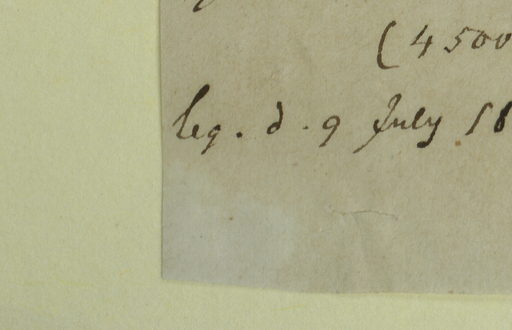 (4500
leg. d. 9 July 18